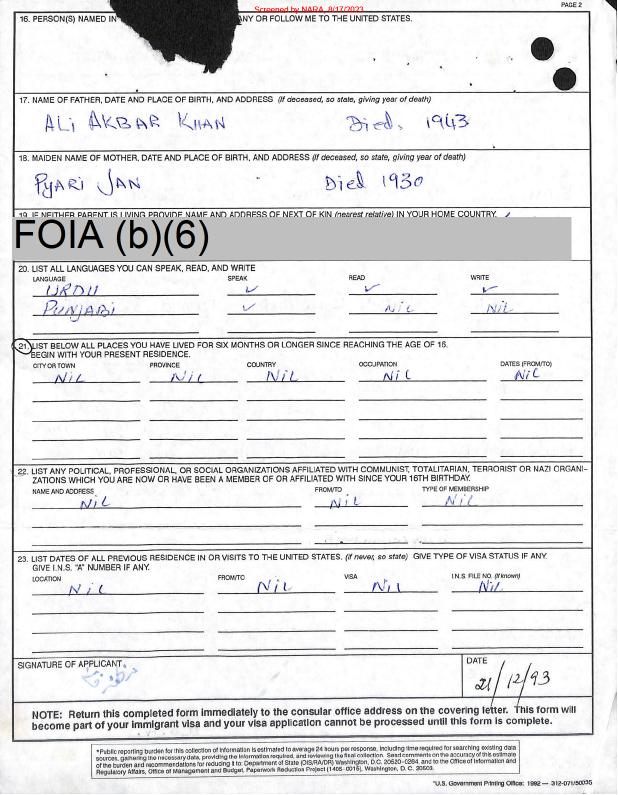 Screened by NARA, 8/17/2023
PAGE 2
16. PERSON(S) NAMED IN ANY OR FOLLOW ME TO THE UNITED STATES.
17. NAME OF FATHER, DATE AND PLACE OF BIRTH, AND ADDRESS (If deceased, so state, giving year of death)
ALi AKBAR KHAN Died. 1943
18. MAIDEN NAME OF MOTHER, DATE AND PLACE OF BIRTH, AND ADDRESS (If deceased, so state, giving year of death)
PYARi JAN Died 1930
19. IF NEITHER PARENT IS LIVING PROVIDE NAME AND ADDRESS OF NEXT OF KIN (nearest relative) IN YOUR HOME COUNTRY.
FOIA (b)(6)
20. LIST ALL LANGUAGES YOU CAN SPEAK, READ, AND WRITE
LANGUAGE SPEAK READ WRITE
URDU ✓ ✓ ✓
PUNJABi ✓ NiL NiL
21. LIST BELOW ALL PLACES YOU HAVE LIVED FOR SIX MONTHS OR LONGER SINCE REACHING THE AGE OF 16.
BEGIN WITH YOUR PRESENT RESIDENCE.
CITY OR TOWN PROVINCE COUNTRY OCCUPATION DATES (FROM/TO)
NiL NiL NiL NiL NiL
22. LIST ANY POLITICAL, PROFESSIONAL, OR SOCIAL ORGANIZATIONS AFFILIATED WITH COMMUNIST, TOTALITARIAN, TERRORIST OR NAZI ORGANI-
ZATIONS WHICH YOU ARE NOW OR HAVE BEEN A MEMBER OF OR AFFILIATED WITH SINCE YOUR 16TH BIRTHDAY.
NAME AND ADDRESS FROM/TO TYPE OF MEMBERSHIP
NiL NiL NiL
23. LIST DATES OF ALL PREVIOUS RESIDENCE IN OR VISITS TO THE UNITED STATES. (if never, so state) GIVE TYPE OF VISA STATUS IF ANY.
GIVE I.N.S. "A" NUMBER IF ANY.
LOCATION FROM/TO VISA I.N.S. FILE NO. (If known)
NiL NiL NiL NiL
SIGNATURE OF APPLICANT
DATE
21/12/93
NOTE: Return this completed form immediately to the consular office address on the covering letter. This form will
become part of your immigrant visa and your visa application cannot be processed until this form is complete.
*Public reporting burden for this collection of information is estimated to average 24 hours per response, including time required for searching existing data
sources, gathering the necessary data, providing the information required, and reviewing the final collection. Send comments on the accuracy of this estimate
of the burden and recommendations for reducing it to: Department of State (OIS/RA/DR) Washington, D.C. 20520-0264, and to the Office of Information and
Regulatory Affairs, Office of Management and Budget, Paperwork Reduction Project (1405-0015), Washington, D.C. 20503.
*U.S. Government Printing Office: 1992 — 312-071/50035